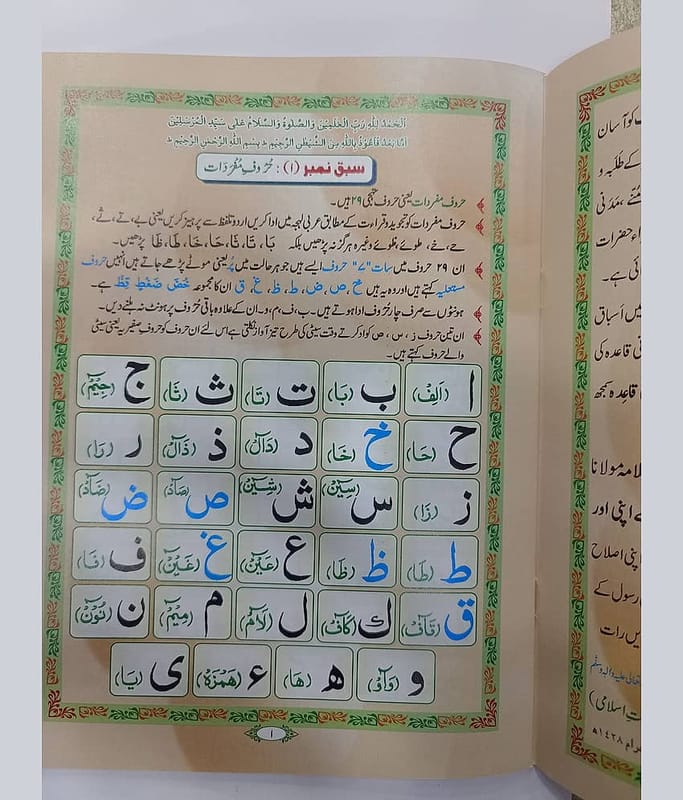 اَلْحَمْدُ لِلّٰهِ رَبِّ الْعٰلَمِيْنَ وَالصَّلٰوةُ وَالسَّلَامُ عَلٰى سَيِّدِ الْمُرْسَلِيْنَ
اَمَّا بَعْدُ فَاَعُوْذُ بِاللّٰهِ مِنَ الشَّيْطٰنِ الرَّجِيْمِ ط بِسْمِ اللّٰهِ الرَّحْمٰنِ الرَّحِيْمِ ط
سبق نمبر (۱) : حُرُوفِ مُفْرَدَات
حروف مفردات یعنی حروف تہجی ۲۹ ہیں۔
حروف مفردات کو تجوید و قراءت کے مطابق عربی لہجہ میں ادا کریں اردو تلفظ سے پرہیز کریں یعنی بے، تے، ثے،
حے، خے، طوئے، ظوئے وغیرہ ہرگز نہ پڑھیں بلکہ بَا، تَا، ثَا، حَا، خَا، طَا، ظَا پڑھیں۔
ان ۲۹ حروف میں سات "۷" حروف ایسے ہیں جو ہر حالت میں پُر یعنی موٹے پڑھے جاتے ہیں انہیں حروف
مستعلیہ کہتے ہیں اور وہ یہ ہیں خ، ص، ض، ط، ظ، غ، ق ان کا مجموعہ خُصَّ ضَغْطٍ قِظْ ہے۔
ہونٹوں سے صرف چار حُرُوف ادا ہوتے ہیں۔ ب، ف، م، و۔ ان کے علاوہ باقی حُرُوف پر ہونٹ نہ ہلنے دیں۔
ان تین حروف ز، س، ص کو ادا کرتے وقت سیٹی کی طرح تیز آواز نکلتی ہے اس لئے ان حروف کو حروفِ صفیریہ یعنی سیٹی
والے حروف کہتے ہیں۔
ا (اَلِفْ) ب (بَا) ت (تَا) ث (ثَا) ج (جِيْمْ)
ح (حَا) خ (خَا) د (دَالْ) ذ (ذَالْ) ر (رَا)
ز (زَا) س (سِيْنْ) ش (شِيْنْ) ص (صَادْ) ض (ضَادْ)
ط (طَا) ظ (ظَا) ع (عَيْنْ) غ (غَيْنْ) ف (فَا)
ق (قَافْ) ك (كَافْ) ل (لَامْ) م (مِيْمْ) ن (نُوْنْ)
و (وَاوْ) ھ (هَا) ء (هَمْزَهْ) ی (يَا)
۱
کو آسان
کے طلبہ و
مَدَنی
حضرات
ئی ہے۔
میں اَسباق
قاعدہ کی
قاعدہ کو سمجھ
مولانا
اپنی اور
اپنی اصلاح
رسول کے
میں رات
تعالیٰ علیہ والہٖ وسلَّم
اسلامی)
۱۴۲۸ھ